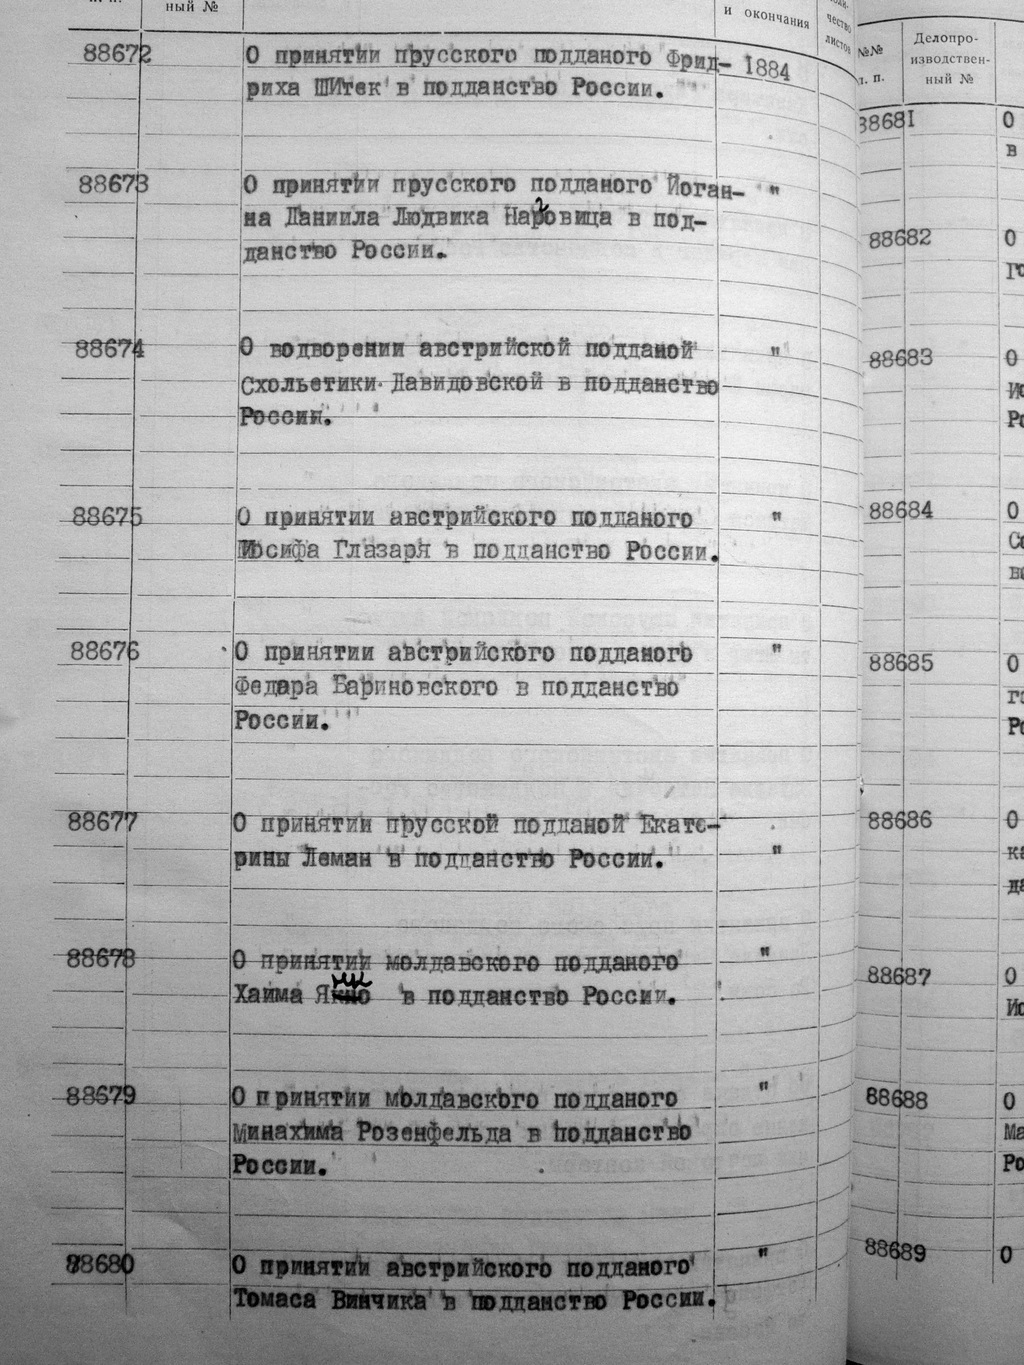 ный №
и окончания
чество
листов
88672 О принятии прусского подданого Фрид- 1884
риха ШИтек в подданство России.
88673 О принятии прусского подданого Йоган- "
на Даниила Людвика в под-
данство России.
88674 О водворении австрийской подданой "
Схольетики Давидовской в подданство
России.
88675 О принятии австрийского подданого "
Иосифа Глазаря в подданство России.
88676 О принятии австрийского подданого "
Федара Бариновского в подданство
России.
88677 О принятии прусской подданой Екате-
рины Леман в подданство России. "
88678 О принятии молдавского подданого "
Хаима в подданство России.
88679 О принятии молдавского подданого "
Минахима Розенфельда в подданство
России.
88680 О принятии австрийского подданого "
Томаса Винчика в подданство России.
№№
п. п.
Делопро-
изводствен-
ный №
88681 О
в
88682 О
Го
88683 О
Ис
Ро
88684 О
Со
во
88685 О
го
Ро
88686 О
ка
да
88687 О
Ис
88688 О
Ма
Ро
88689 О